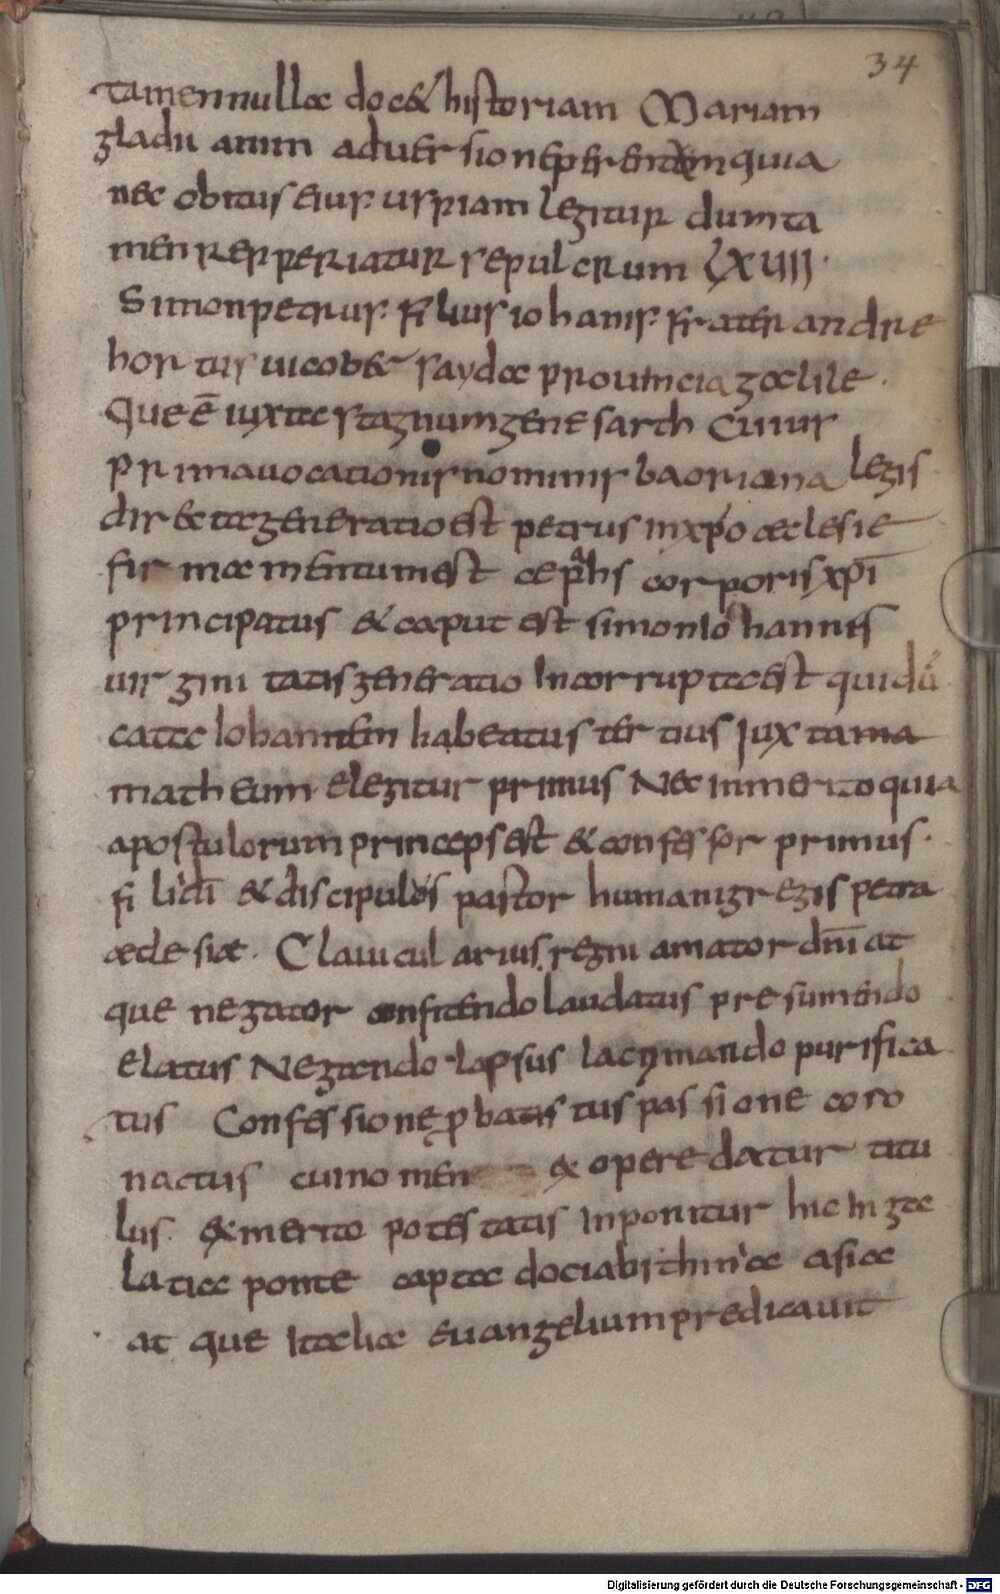 34
tamen nulla doc& historiam Mariam
gladii anim aduersione peremtam quia
nec obitus eius uspiam legitur dumta
men repperiatur sepulcrum LXVIII.
Simon petrus filius iohanis frater andre
hortus uico b& saydæ prouincia galile.
Que ē iuxta stagnum genesarth Cuius
prima uocationis nominis baoriana legis
directa generatio est petrus in xp̄o æclesie
firmamentum est cephas corporis xp̄i
principatus & caput est simon iohannes
uirginitatis generatio Incorrupta est qui dū
cata Iohannem habeatus tertius Iuxta ma
matheum elegitur primus Nec inmerito quia
apostulorum princeps est & confessor primus.
fili dī & discipulus pastor humani gregis petra
æclesiæ. Clauicularius regni amator dn̄i at
que negator confitendo laudatus presumendo
elatus Negando lapsus lacrymando purifica
tus Confessione probatus tus passione coro
nactus cui nomen & opere datur titu
lus & merito potestatis Inponitur hic In ga
latia ponte capta docia bithinia asiæ
at que Italiæ euangelium predicauit
Digitalisierung gefördert durch die Deutsche Forschungsgemeinschaft - DFG